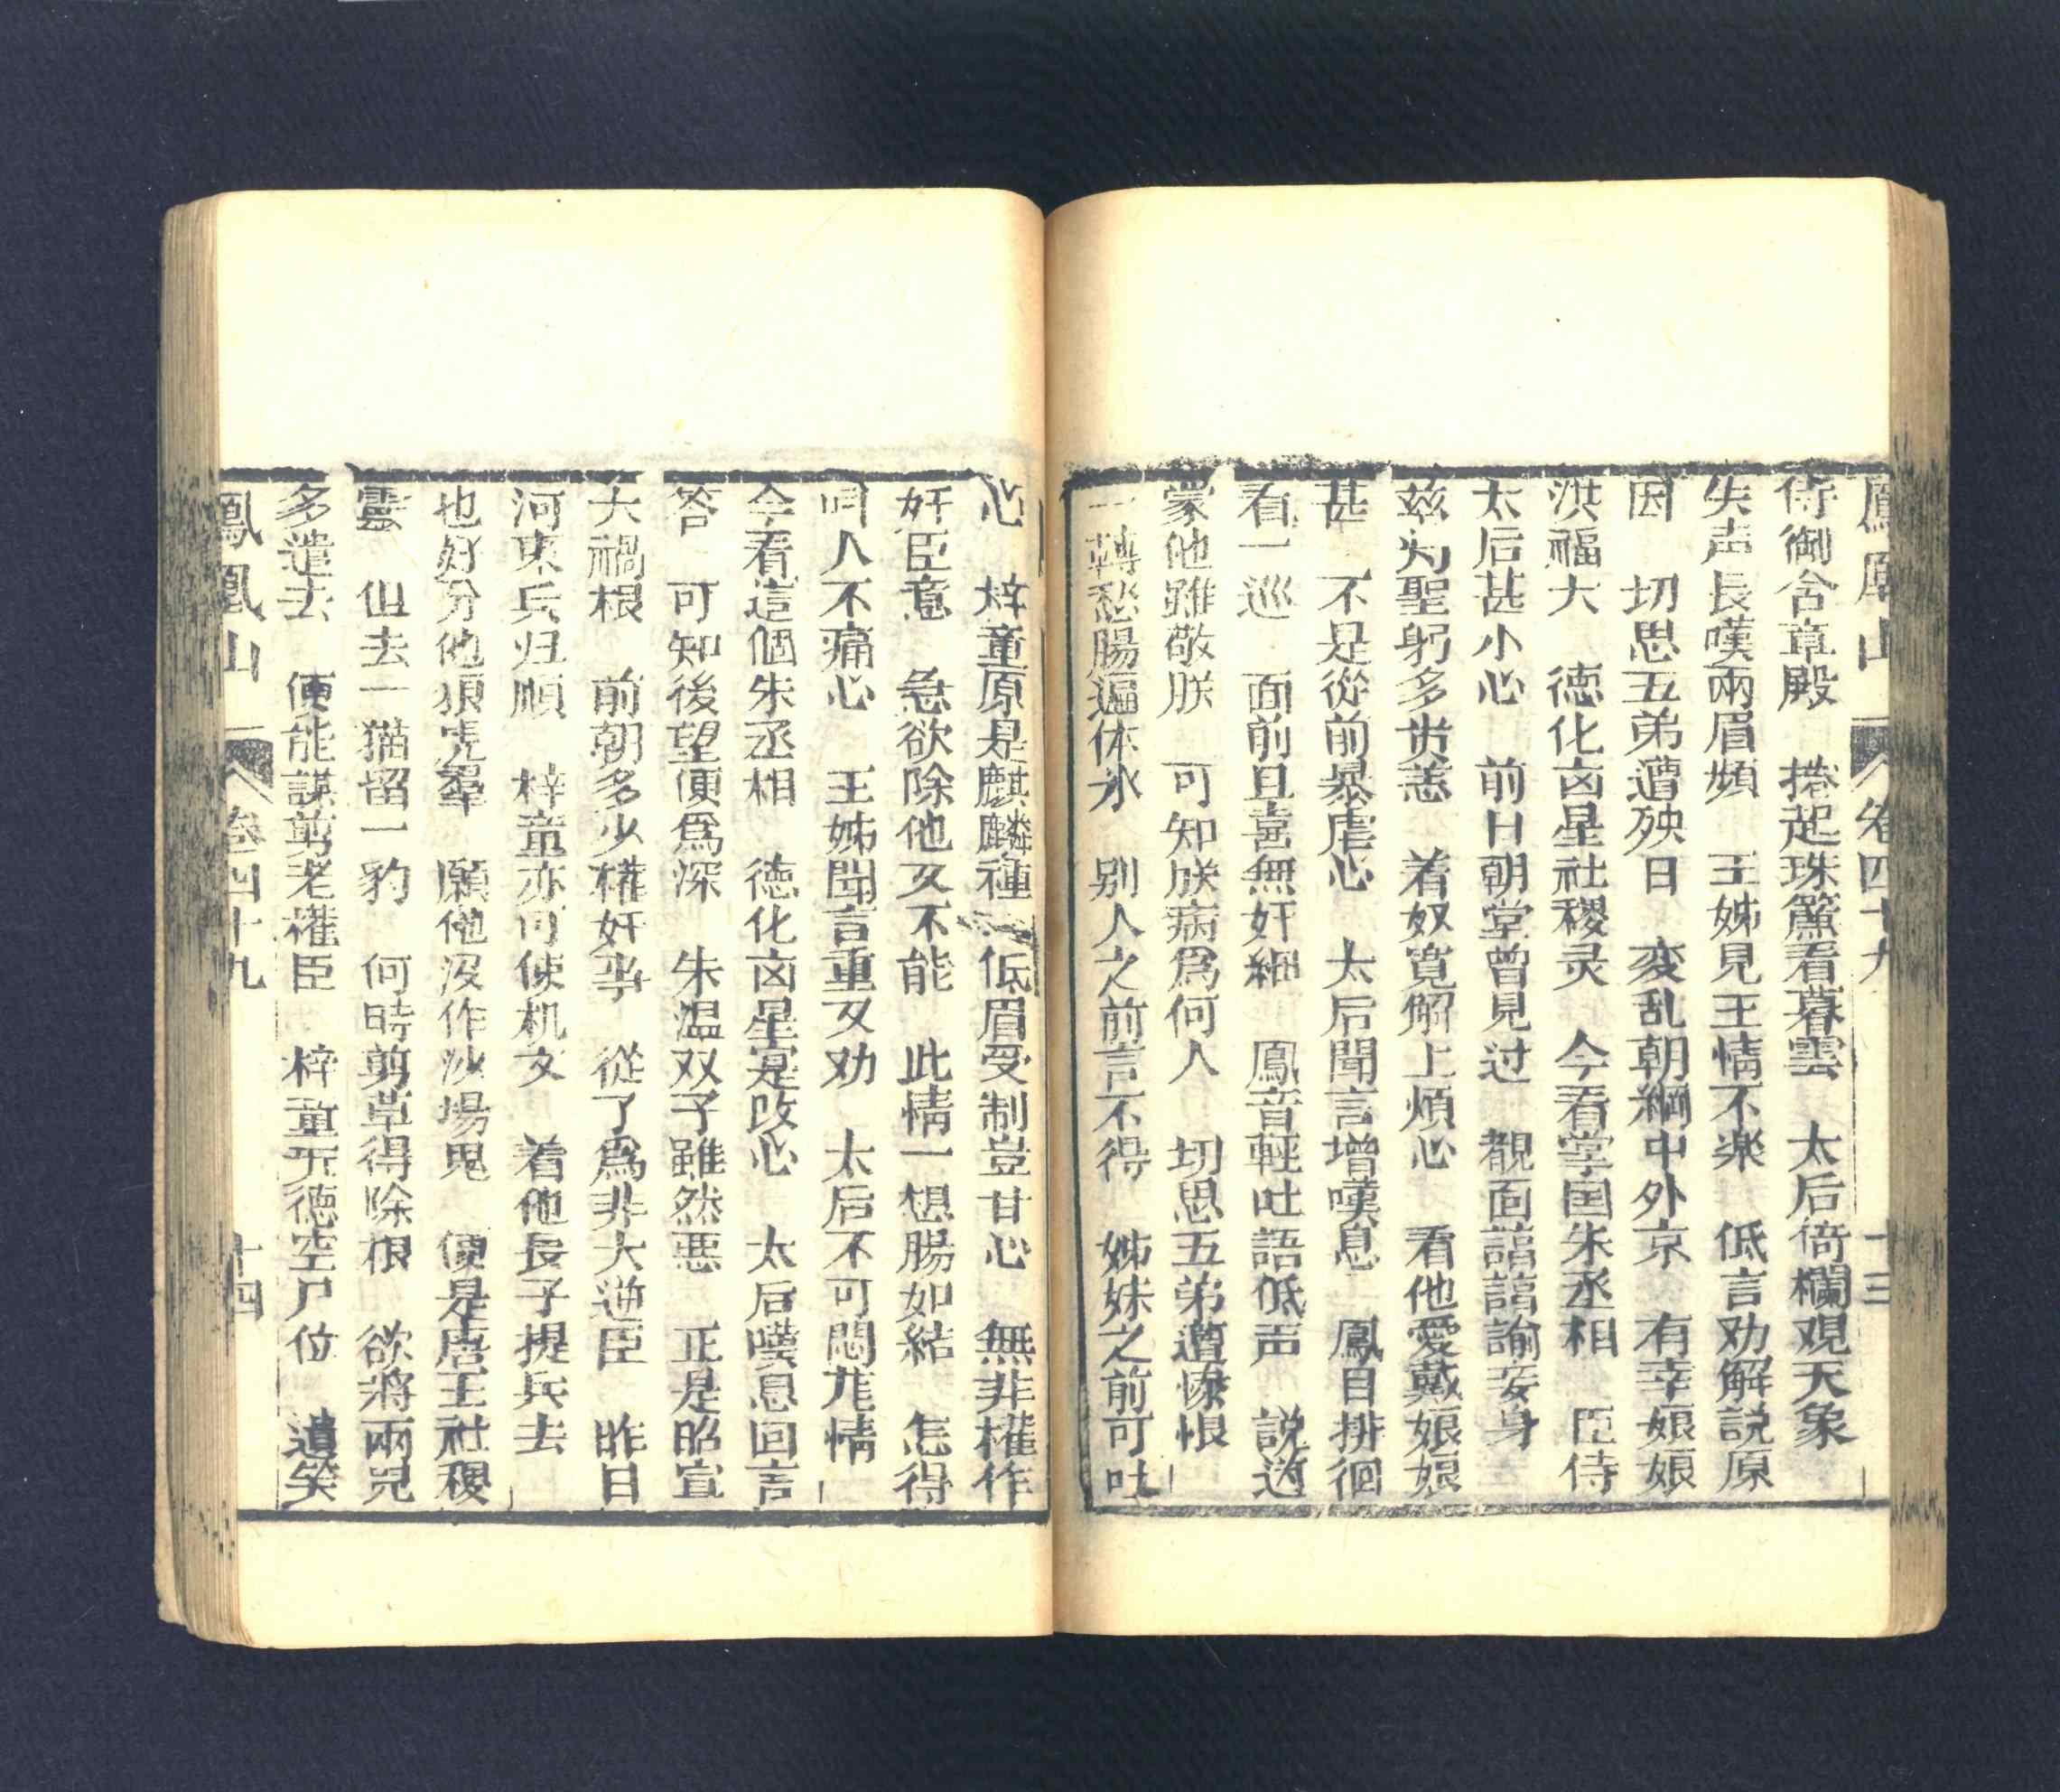 鳳凰山 卷四十九 十三
侍御含章殿 捲起珠簾看暮雲 太后倚欄观天象
失声長嘆兩眉頻 王姊見王情不楽 低言劝解説原
因 切思五弟遭殃日 変乱朝綱中外京 有幸娘娘
洪福大 徳化凶星社稷灵 今看掌国朱丞相 臣侍
太后甚小心 前日朝堂曾見过 覩面諄諄諭妾身
兹为聖躬多恙 着奴寬解上煩心 看他愛戴娘娘
甚 不是從前暴虐心 太后聞言增嘆息 鳳目排徊
看一巡 面前且喜無奸細 鳳音輕吐語低声 説道
蒙他雖敬朕 可知朕病爲何人 切思五弟遭慘恨
一轉愁腸遍体氷 别人之前言不得 姊妹之前可吐
心 梓童原是麒麟種 低眉受制豈甘心 無非權作
奸臣意 急欲除他又不能 此情一想腸如結 怎得
叫人不痛心 王姊聞言重又劝 太后不可悶尨情
今看這個朱丞相 徳化凶星寔改心 太后嘆息回言
答 可知後望便爲深 朱温双子雖然悪 正是昭宣
大禍根 前朝多少權奸事 從了爲非大逆臣 昨日
河東兵归順 梓童亦可使机文 着他長子提兵去
也好分他狠虎羣 願他没作沙場鬼 便是唐王社稷
雲 但去一猫留一豹 何時剪草得除根 欲將兩児
多遣去 便能謀剪老權臣 梓童无徳空尸位 遺笑
鳳凰山 卷四十九 十四